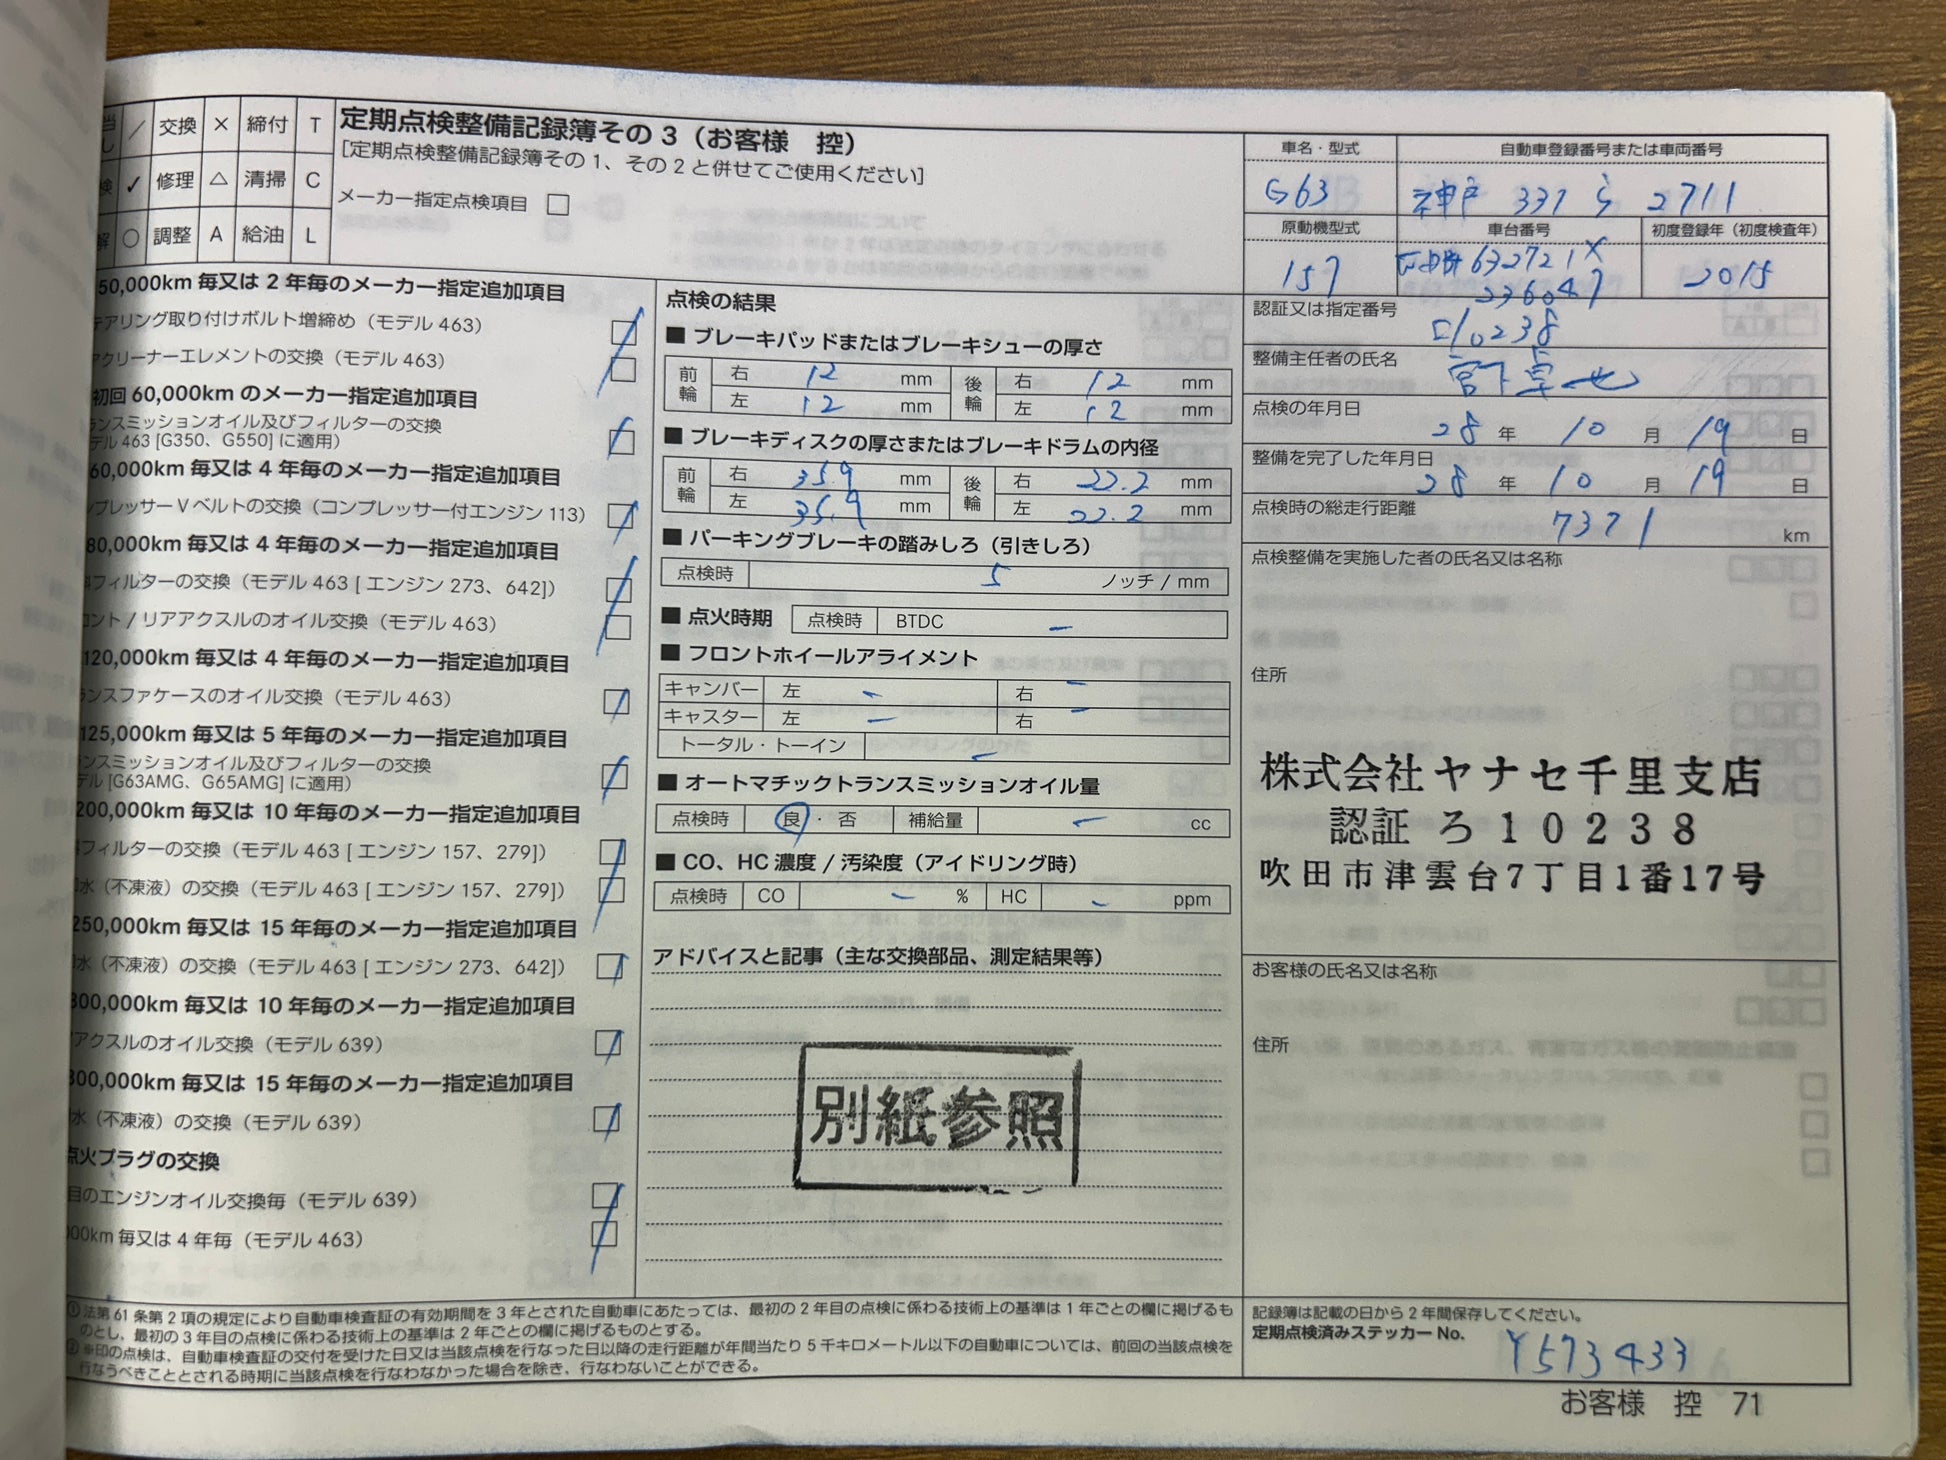 ／ 交換 × 締付 T
✓ 修理 △ 清掃 C
○ 調整 A 給油 L
定期点検整備記録簿その3（お客様 控）
［定期点検整備記録簿その1、その2と併せてご使用ください］
メーカー指定点検項目 □
50,000km 毎又は 2 年毎のメーカー指定追加項目
テアリング取り付けボルト増締め（モデル 463）
アクリーナーエレメントの交換（モデル 463）
初回 60,000km のメーカー指定追加項目
ランスミッションオイル及びフィルターの交換
デル 463 [G350、G550] に適用）
60,000km 毎又は 4 年毎のメーカー指定追加項目
ンプレッサー V ベルトの交換（コンプレッサー付エンジン 113）
80,000km 毎又は 4 年毎のメーカー指定追加項目
フィルターの交換（モデル 463 [ エンジン 273、642]）
ロント / リアアクスルのオイル交換（モデル 463）
120,000km 毎又は 4 年毎のメーカー指定追加項目
ランスファケースのオイル交換（モデル 463）
125,000km 毎又は 5 年毎のメーカー指定追加項目
ンスミッションオイル及びフィルターの交換
デル [G63AMG、G65AMG] に適用）
200,000km 毎又は 10 年毎のメーカー指定追加項目
フィルターの交換（モデル 463 [ エンジン 157、279]）
水（不凍液）の交換（モデル 463 [ エンジン 157、279]）
250,000km 毎又は 15 年毎のメーカー指定追加項目
水（不凍液）の交換（モデル 463 [ エンジン 273、642]）
300,000km 毎又は 10 年毎のメーカー指定追加項目
アクスルのオイル交換（モデル 639）
300,000km 毎又は 15 年毎のメーカー指定追加項目
水（不凍液）の交換（モデル 639）
点火プラグの交換
目のエンジンオイル交換毎（モデル 639）
000km 毎又は 4 年毎（モデル 463）
点検の結果
■ ブレーキパッドまたはブレーキシューの厚さ
前輪 右 12 mm 後輪 右 12 mm
左 12 mm 左 12 mm
■ ブレーキディスクの厚さまたはブレーキドラムの内径
前輪 右 35.9 mm 後輪 右 22.2 mm
左 35.9 mm 左 22.2 mm
■ パーキングブレーキの踏みしろ（引きしろ）
点検時 5 ノッチ / mm
■ 点火時期 点検時 BTDC –
■ フロントホイールアライメント
キャンバー 左 – 右 –
キャスター 左 – 右 –
トータル・トーイン –
■ オートマチックトランスミッションオイル量
点検時 良・否 補給量 – cc
■ CO、HC 濃度 / 汚染度（アイドリング時）
点検時 CO – % HC – ppm
アドバイスと記事（主な交換部品、測定結果等）
別紙参照
車名・型式 自動車登録番号または車両番号
G63 神戸 331 ら 2711
原動機型式 車台番号 初度登録年（初度検査年）
157 632721X 2015
236047
認証又は指定番号
ろ10238
整備主任者の氏名
宮下卓也
点検の年月日
28 年 10 月 19 日
整備を完了した年月日
28 年 10 月 19 日
点検時の総走行距離
7371 km
点検整備を実施した者の氏名又は名称
住所
株式会社ヤナセ千里支店
認証 ろ10238
吹田市津雲台7丁目1番17号
お客様の氏名又は名称
住所
① 法第 61 条第 2 項の規定により自動車検査証の有効期間を 3 年とされた自動車にあたっては、最初の 2 年目の点検に係わる技術上の基準は 1 年ごとの欄に掲げるも
のとし、最初の 3 年目の点検に係わる技術上の基準は 2 年ごとの欄に掲げるものとする。
② ※印の点検は、自動車検査証の交付を受けた日又は当該点検を行なった日以降の走行距離が年間当たり 5 千キロメートル以下の自動車については、前回の当該点検を
行なうべきこととされる時期に当該点検を行なわなかった場合を除き、行なわないことができる。
記録簿は記載の日から 2 年間保存してください。
定期点検済みステッカー No.
Y573433
お客様 控 71